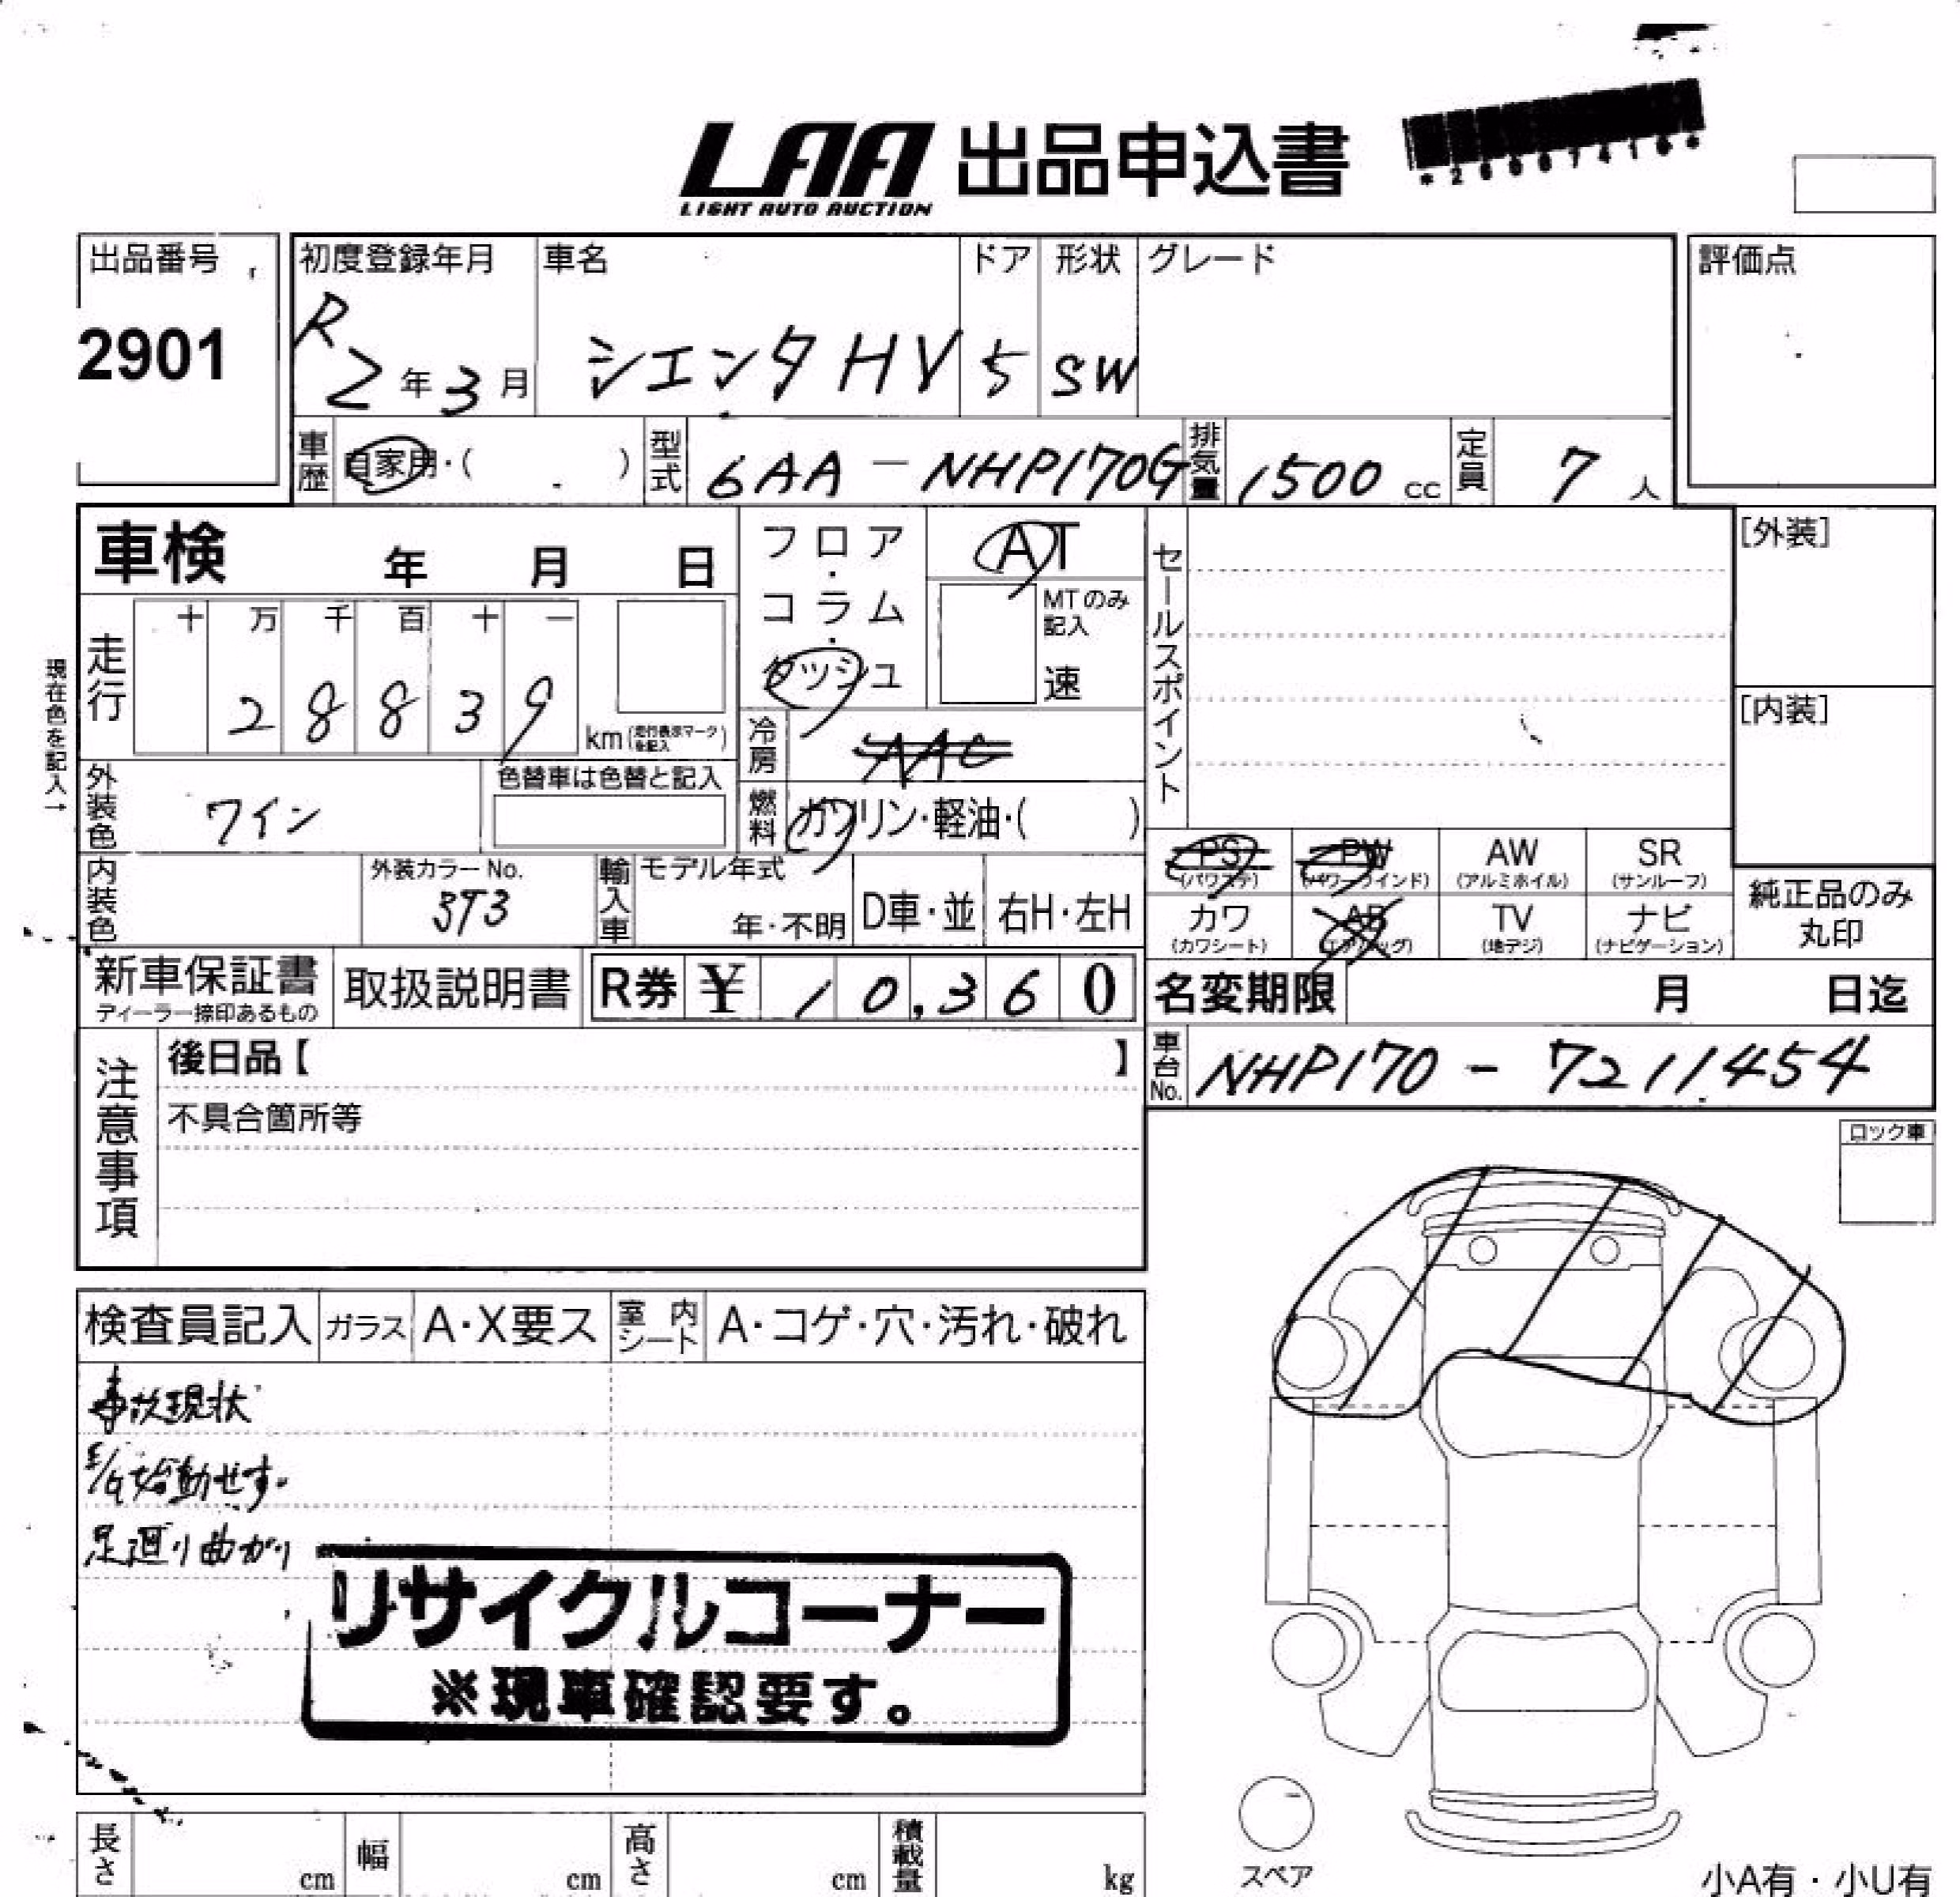 LAA 出品申込書
LIGHT AUTO AUCTION
出品番号
2901
初度登録年月 車名 ドア 形状 グレード 評価点
R
2年3月 シエンタHV 5 SW
車歴 自家用・( ) 型式 6AA-NHP170G 排気量 1500 cc 定員 7 人
車検 年 月 日
フロア・コラム・ダッシュ AT
MTのみ記入
速
セールスポイント
[外装]
[内装]
現在色を記入→
走行 十 万 千 百 十 一
2 8 8 3 9 km(走行表示マークを記入)
冷房
外装色 ワイン 色替車は色替と記入
燃料 ガソリン・軽油・( )
PS PW AW SR
(パワステ) (パワーウインド) (アルミホイル) (サンルーフ)
カワ AB TV ナビ
(カワシート) (エアバッグ) (地デジ) (ナビゲーション)
純正品のみ
丸印
内装色 外装カラーNo. 3T3 輸入車 モデル年式 年・不明 D車・並 右H・左H
新車保証書 取扱説明書 R券 ¥ 1 0,3 6 0
ディーラー捺印あるもの
名変期限 月 日迄
車台No. NHP170-7211454
注意事項
後日品【 】
不具合箇所等
ロック車
検査員記入 ガラス A・X要ス 室内シート A・コゲ・穴・汚れ・破れ
事故現状
E/G始動せず。
足廻り曲がり
リサイクルコーナー
※現車確認要す。
長さ cm 幅 cm 高さ cm 積載量 kg
スペア
小A有・小U有